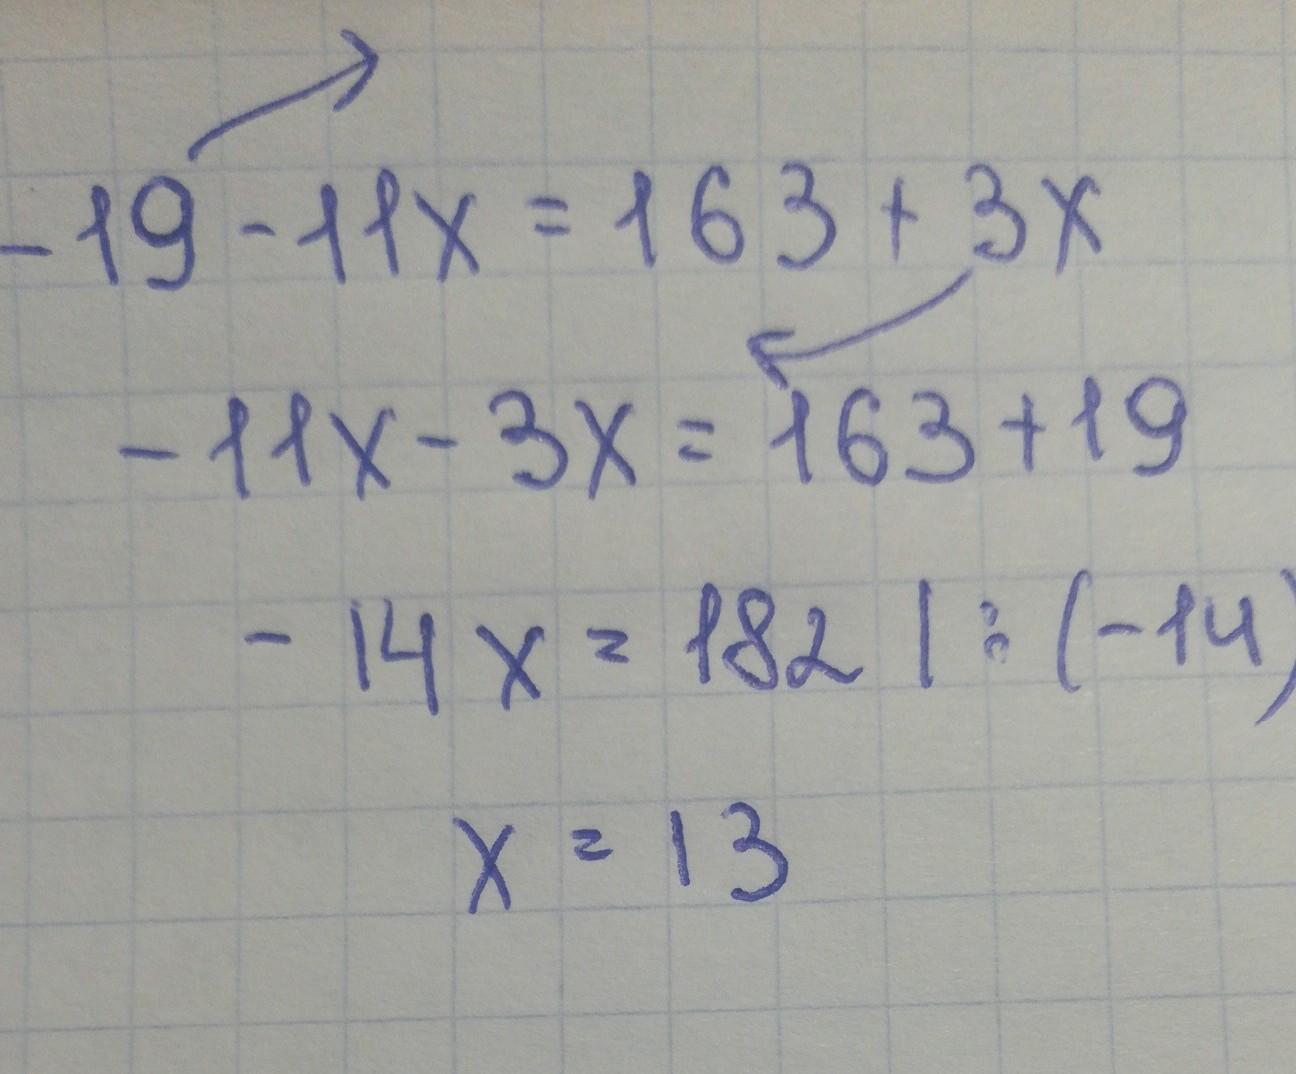 -19 - 11x = 163 + 3x
-11x - 3x = 163 + 19
-14x = 182 | : (-14)
x = 13